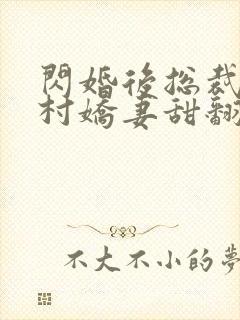 閃婚後總裁
村嬌妻甜翻
不大不小的夢